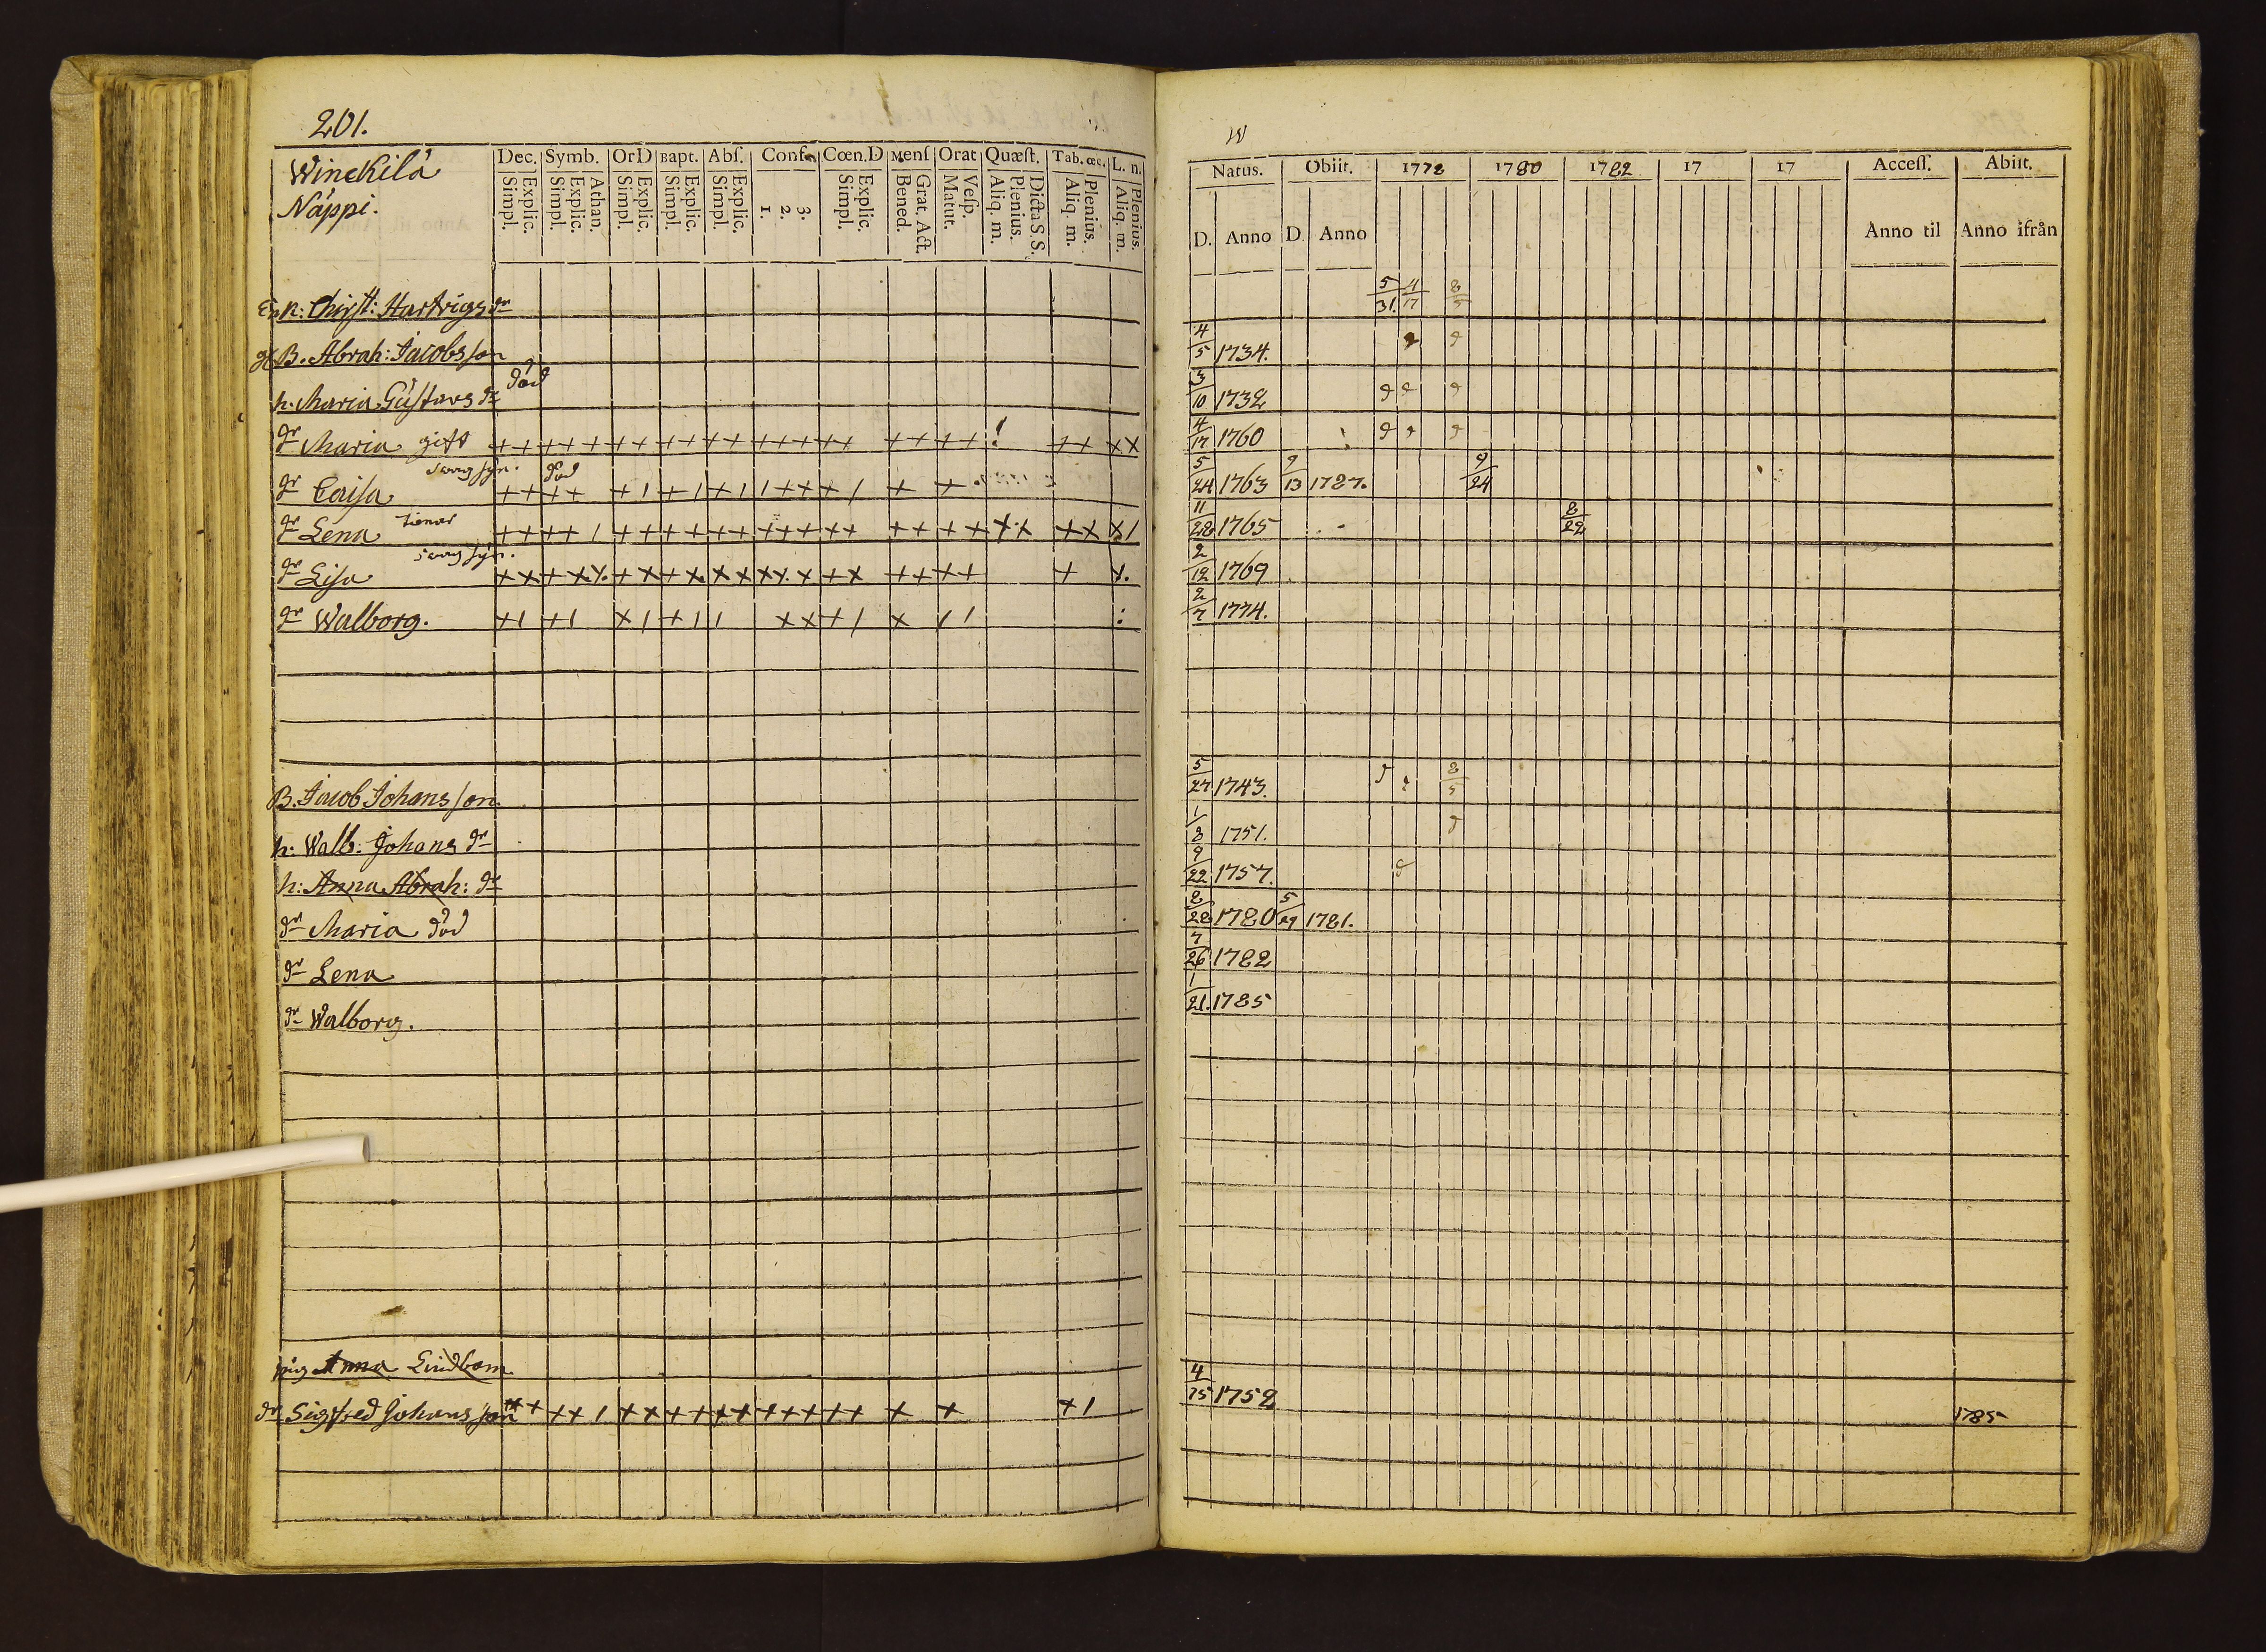 201.
Winckilä
Näppi.
Dec. Symb. OrD Bapt. Abſ. Conf. Cœn.D Menſ Orat Quæſt. Tab. œc. L. n.
Simpl. Explic. Simpl. Explic. Athan. Simpl. Explic. Simpl. Explic. Simpl. Explic. 1. 2. 3. Simpl. Explic. Bened. Grat. Act. Matut. Veſp. Aliq. m. Plenius. Dicta S. S. Aliq. m. Plenius. Aliq. m. Plenius.
Enk: Christ: Hartvigs dr
B. Abrah: Jacobsson
h. Maria Gustavs dr död
dr Maria gift + + + + + + + + + + + + + + + + + + + + + ! + + x x
dr Caisa svagsyn. död + + + + + 1 + 1 + 1 1 + + + 1 + +
dr Lena tienar + + + + 1 + + + + + + + + + + + + + + + x x + x x 1
dr Lisa svagsyn. + x + x x. + x + x x x x x x + x + + + + + x.
dr Walborg. + 1 + 1 x 1 + 1 1 x x + 1 x 1 1 :
B. Jacob Johansson
h: Walb: Johans dr
h: Anna Abrah: dr
dr Maria död
dr Lena
dr Walborg.
Anna Lindbom
dr Sigfred Johansson + + + + 1 + + + + + + + + + + + + + + 1
W
Natus. Obiit. 1778 1780 1782 17 17 Acceſſ. Abiit.
D. Anno D. Anno Anno til Anno ifrån
5/31. 4/17 8/5
4/5 1734.
3/10 1732
4/17 1760
5/24 1763 9/13 1787. 9/24
11/28 1765 8/22
2/12 1769
2/7 1774.
5/27 1743. 8/5
1/8 1751.
9/22 1757.
8/28 1780 5/29 1781.
7/26 1782
1/21. 1785
4/25 1758
1785